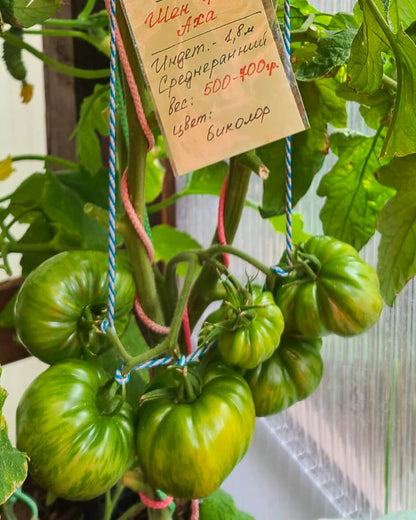 Шон
Аха
Индет. - 1,8м
Среднеранний
Вес: 500-700гр.
Цвет:
биколор